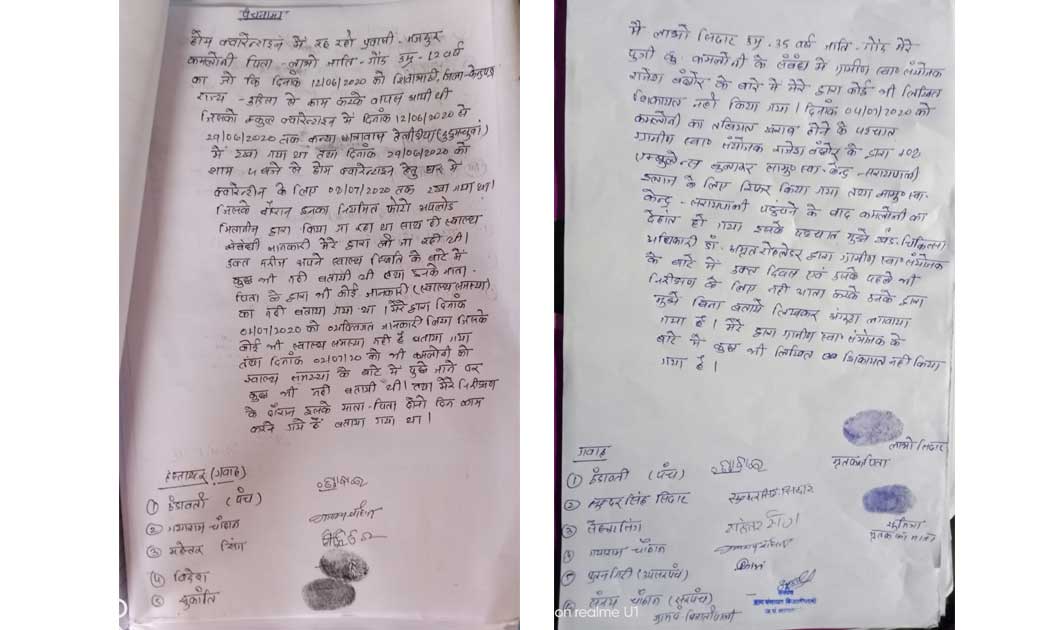 पंचनामा
होम क्वारेन्टाइन में रह रही प्रवासी मजदुर
कमलोनी पिता - लाभो जाति - गोंड उम्र - 12 वर्ष
का जो कि दिनांक 12/06/2020 को
राज्य - उड़िसा से काम करके वापस आयी थी
जिसको स्कुल क्वारेन्टाइन में दिनांक 12/06/2020 से
29/06/2020 तक कन्या छात्रावास
में रखा गया था तथा दिनांक 29/06/2020 को
शाम 5 बजे से होम क्वारेन्टाइन हेतु घर में
क्वारेन्टीन के लिए 02/07/2020 तक रखा गया था।
जिसके दौरान इनका नियमित फोटो अपलोड
द्वारा किया जा रहा था साथ ही स्वास्थ्य
संबंधी जानकारी मेरे द्वारा ली जा रही थी।
उक्त मरीज अपने स्वास्थ्य स्थिति के बारे में
कुछ भी नही बतायी थी तथा इनके माता-
पिता के द्वारा भी कोई जानकारी (स्वास्थ्य समस्या)
का नही बताया गया था। मेरे द्वारा दिनांक
01/07/2020 को व्यक्तिगत जानकारी लिया जिसके
कोई भी स्वास्थ्य समस्या नही है बताया गया
तथा दिनांक 02/07/20 को भी कमलोनी को
स्वास्थ्य समस्या के बारे में पुछे जाने पर
कुछ भी नही बतायी थी। तथा मेरे निरीक्षण
के दौरान इसके माता-पिता दोनो दिन काम
करने गये हैं बताया गया था।
हस्ताक्षर (गवाह)
① हेडावती (पंच)
② गयाराम चौहान
③ महेत्तर सिंग
④ विदेश
⑤ सुकांति
मै लाभो सिदार उम्र - 35 वर्ष जाति - गोंड मेरे
पुत्री कु. कमलोनी के संबंध में ग्रामीण स्वा० संयोजक
राजेश के बारे में मेरे द्वारा कोई भी लिखित
शिकायत नही किया गया। दिनांक 04/07/2020 को
कमलोनी का तबियत खराब होने के पश्चात
ग्रामीण स्वा० संयोजक राजेश के द्वारा 108
एम्बुलेन्स बुलाकर सामु० स्वा. केन्द्र - सरायपाली
इलाज के लिए रिफर किया गया तथा सामु० स्वा.
केन्द्र - सरायपाली पहुंचने के बाद कमलोनी का
देहांत हो गया इसके पश्चात मुझे खंड चिकित्सा
अधिकारी डॉ. अमृत रोहलेडर द्वारा ग्रामीण स्वा० संयोजक
के बारे में उक्त दिवस एवं उसके पहले भी
निरीक्षण के लिए नही आता करके उनके द्वारा
मुझे बिना बताये लिखकर अंगुठा लगवाया
गया है। मेरे द्वारा ग्रामीण स्वा० संयोजक के
बारे में कुछ भी लिखित शिकायत नही किया
गया है।
लाभो सिदार
मृतक का पिता
गवाह
① हेडावती (पंच)
② सिंह सिदार
③
④ गयाराम चौहान
⑤ (उपसरपंच)
⑥ चौहान (सरपंच)
मृतक का माता
on realme U1